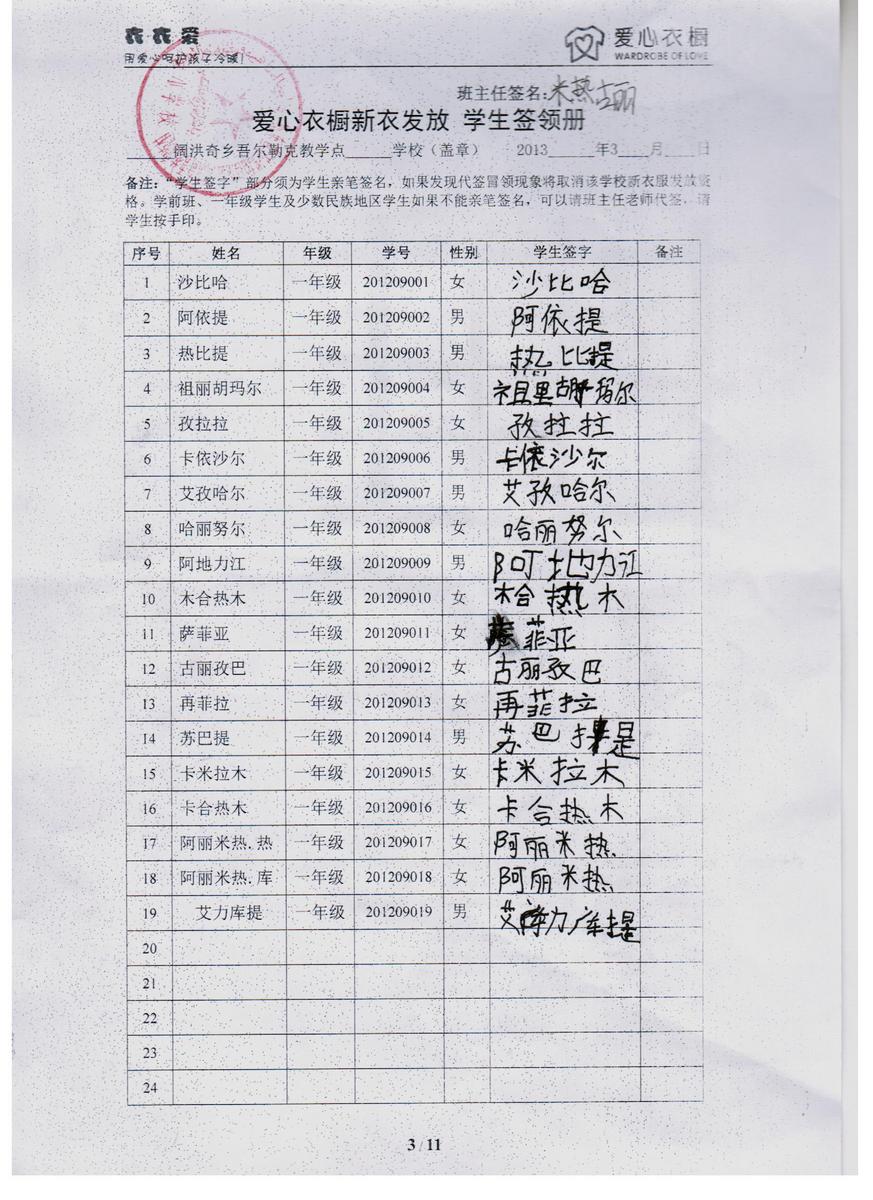 衣衣爱
用爱心呵护孩子冷暖！
爱心衣橱
WARDROBE OF LOVE
班主任签名：米热古丽
爱心衣橱新衣发放 学生签领册
阔洪奇乡吾尔勒克教学点 学校（盖章） 2013 年3 月 日
备注：“学生签字”部分须为学生亲笔签名，如果发现代签冒领现象将取消该学校新衣服发放资
格。学前班、一年级学生及少数民族地区学生如果不能亲笔签名，可以请班主任老师代签，请
学生按手印。
序号 姓名 年级 学号 性别 学生签字 备注
1 沙比哈 一年级 201209001 女 沙比哈
2 阿依提 一年级 201209002 男 阿依提
3 热比提 一年级 201209003 男 热比提
4 祖丽胡玛尔 一年级 201209004 女 祖里胡玛尔
5 孜拉拉 一年级 201209005 女 孜拉拉
6 卡依沙尔 一年级 201209006 男 卡依沙尔
7 艾孜哈尔 一年级 201209007 男 艾孜哈尔
8 哈丽努尔 一年级 201209008 女 哈丽努尔
9 阿地力江 一年级 201209009 男 阿地力江
10 木合热木 一年级 201209010 女 木合热木
11 萨菲亚 一年级 201209011 女 菲亚
12 古丽孜巴 一年级 201209012 女 古丽孜巴
13 再菲拉 一年级 201209013 女 再菲拉
14 苏巴提 一年级 201209014 男 苏巴提
15 卡米拉木 一年级 201209015 女 卡米拉木
16 卡合热木 一年级 201209016 女 卡合热木
17 阿丽米热.热 一年级 201209017 女 阿丽米热
18 阿丽米热.库 一年级 201209018 女 阿丽米热
19 艾力库提 一年级 201209019 男 艾力库提
20
21
22
23
24
3 / 11